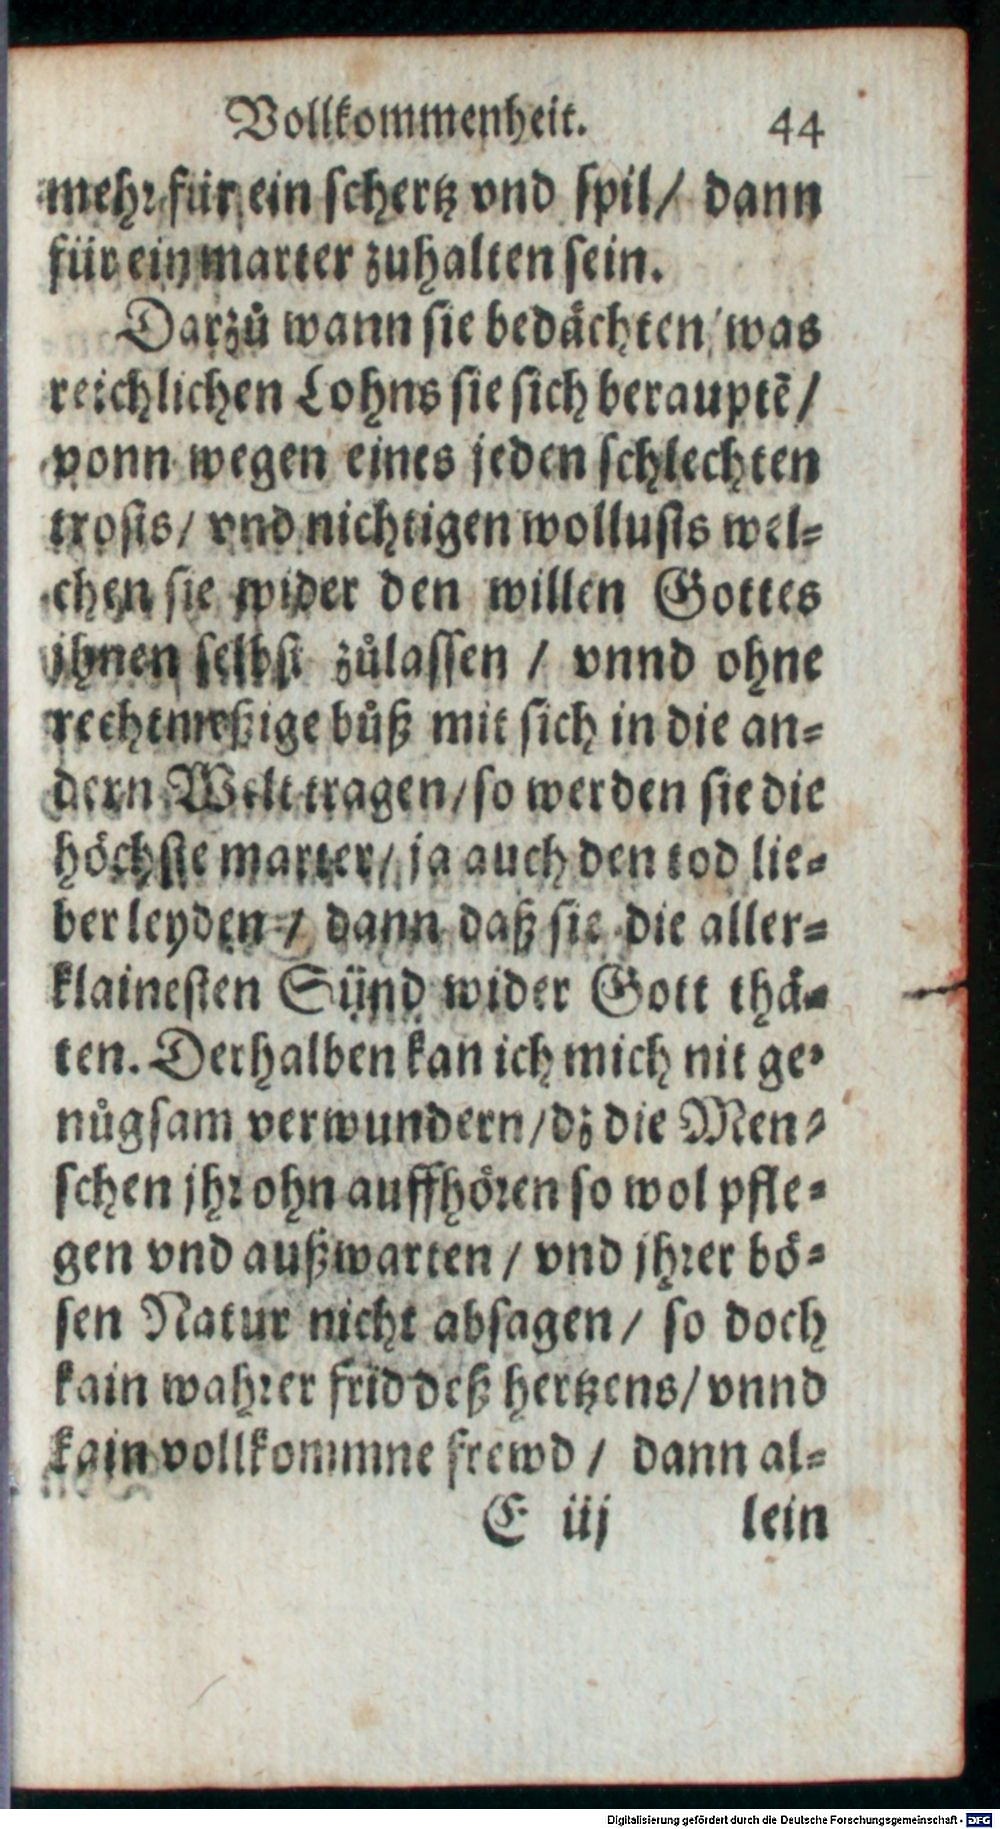 Vollkommenheit. 44
mehr für ein schertz vnd spil/ dann
für ein marter zuhalten sein.
Darzů wann sie bedächten/ was
reichlichen Lohns sie sich berauptē/
vonn wegen eines jeden schlechten
trosts/ vnd nichtigen wollusts wel-
chen sie wider den willen Gottes
jhnen selbst zůlassen / vnnd ohne
rechtmeßige bůß mit sich in die an-
dern Welt tragen/so werden sie die
höchste marter/ ja auch den tod lie-
ber leyden / dann daß sie die aller-
klainesten Sünd wider Gott thä-
ten. Derhalben kan ich mich nit ge-
nůgsam verwundern/dz die Men-
schen jhr ohn auffhören so wol pfle-
gen vnd außwarten / vnd jhrer bö-
sen Natur nicht absagen/ so doch
kain wahrer frid deß hertzens/ vnnd
kain vollkommne frewd / dann al-
E iij lein
Digitalisierung gefördert durch die Deutsche Forschungsgemeinschaft - DFG